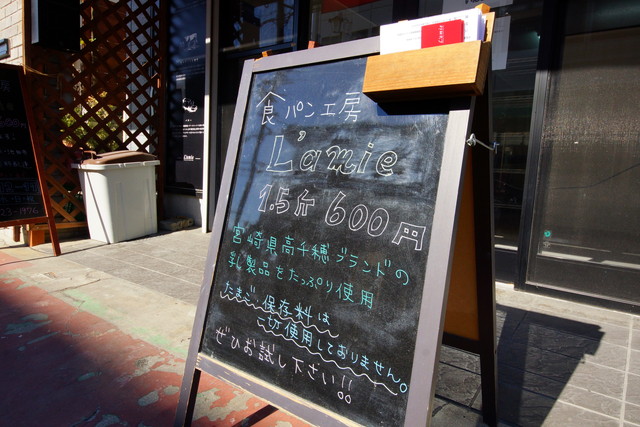 食パン工房
L'amie
1.5斤 600円
宮崎県高千穂ブランドの
乳製品をたっぷり使用
たまご、保存料は
一切使用しておりません。
ぜひお試し下さい!!